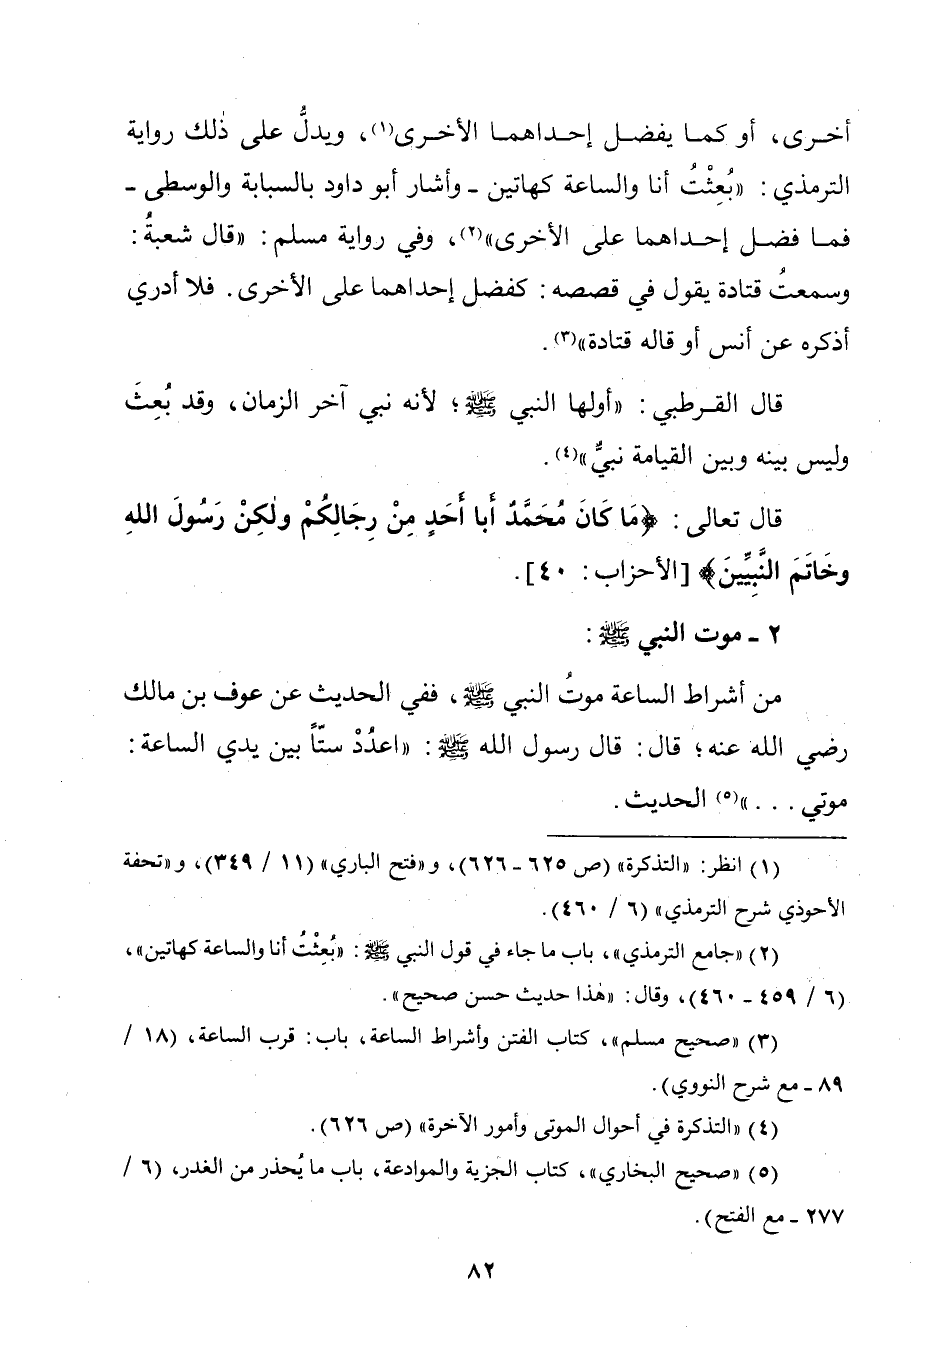 أخرى، أو كما يفضل إحداهما الأخرى(١)، ويدلُّ على ذٰلك رواية
الترمذي: «بُعِثْتُ أنا والساعة كهاتين ـ وأشار أبو داود بالسبابة والوسطى ـ
فما فضل إحداهما على الأخرى»(٢)، وفي رواية مسلم: «قال شعبةُ:
وسمعتُ قتادة يقول في قصصه: كفضل إحداهما على الأخرى. فلا أدري
أذكره عن أنس أو قاله قتادة»(٣).
قال القرطبي: «أولها النبي ﷺ؛ لأنه نبي آخر الزمان، وقد بُعِثَ
وليس بينه وبين القيامة نبيٌّ»(٤).
قال تعالى: ﴿مَا كَانَ مُحَمَّدٌ أَبا أَحَدٍ مِنْ رِجَالِكُمْ ولٰكِنْ رَسُولَ اللهِ
وخَاتَمَ النَّبِيِّينَ﴾ [الأحزاب: ٤٠].
٢ ـ موت النبي ﷺ:
من أشراط الساعة موتُ النبي ﷺ، ففي الحديث عن عوف بن مالك
رضي الله عنه؛ قال: قال رسول الله ﷺ: «اعدُدْ ستّاً بين يدي الساعة:
موتي . . . »(٥) الحديث.
(١) انظر: «التذكرة» (ص ٦٢٥ ـ ٦٢٦)، و«فتح الباري» (١١ / ٣٤٩)، و«تحفة
الأحوذي شرح الترمذي» (٦ / ٤٦٠).
(٢) «جامع الترمذي»، باب ما جاء في قول النبي ﷺ: «بُعِثْتُ أنا والساعة كهاتين»،
(٦ / ٤٥٩ ـ ٤٦٠)، وقال: «هٰذا حديث حسن صحيح».
(٣) «صحيح مسلم»، كتاب الفتن وأشراط الساعة، باب: قرب الساعة، (١٨ /
٨٩ ـ مع شرح النووي).
(٤) «التذكرة في أحوال الموتى وأمور الآخرة» (ص ٦٢٦).
(٥) «صحيح البخاري»، كتاب الجزية والموادعة، باب ما يُحذر من الغدر، (٦ /
٢٧٧ ـ مع الفتح).
٨٢